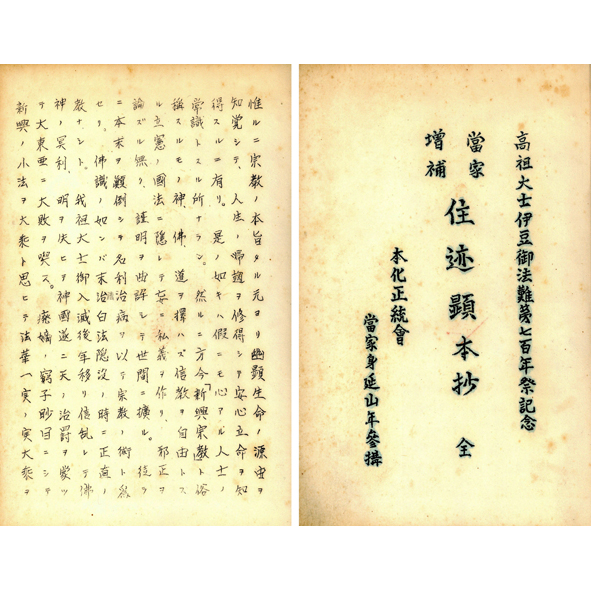 高祖大士伊豆御法難第七百年祭記念
當家
增補
住迹顕本抄 全
本化正統會
當家身延山年參講
惟ルニ宗教ノ本旨タル元ヨリ幽顕生命ノ源虫ヲ
知覚シテ、人生ノ帰趣ヲ修得シテ安心立命ヲ知
得スルニ有リ。是ノ如キハ假ニモ心アル人士ノ
常識トスル所ナラン。然ルニ方今「新興宗教」ト俗
稱スルモノ神、佛、道ヲ擇ハズ信教ヲ自由トス
ル立憲ノ國法ニ隠レテ妄ニ私義ヲ作リ、邪正ヲ
論ズル無ク、謹明ヲ曲譯シテ世間ニ擴ル。徒ラ
ニ本末ヲ顚倒シテ名利治病ヲ以テ宗教ノ術ト
セリ。佛識ノ如ンバ末治白法隠没ノ時ニ正直ノ
教ナント。我祖大士御入滅後年移リ信乱レテ佛
神ノ冥利、明ヲ失ヒテ神國遂ニ天ノ治罰ヲ愛ツ
テ大東亜ニ大敗ヲ喫ス。療嬌ノ窮子眇目ニシテ
新興ノ小法ヲ大乘ト思ヒテ法華一実ノ実大乘ヲ